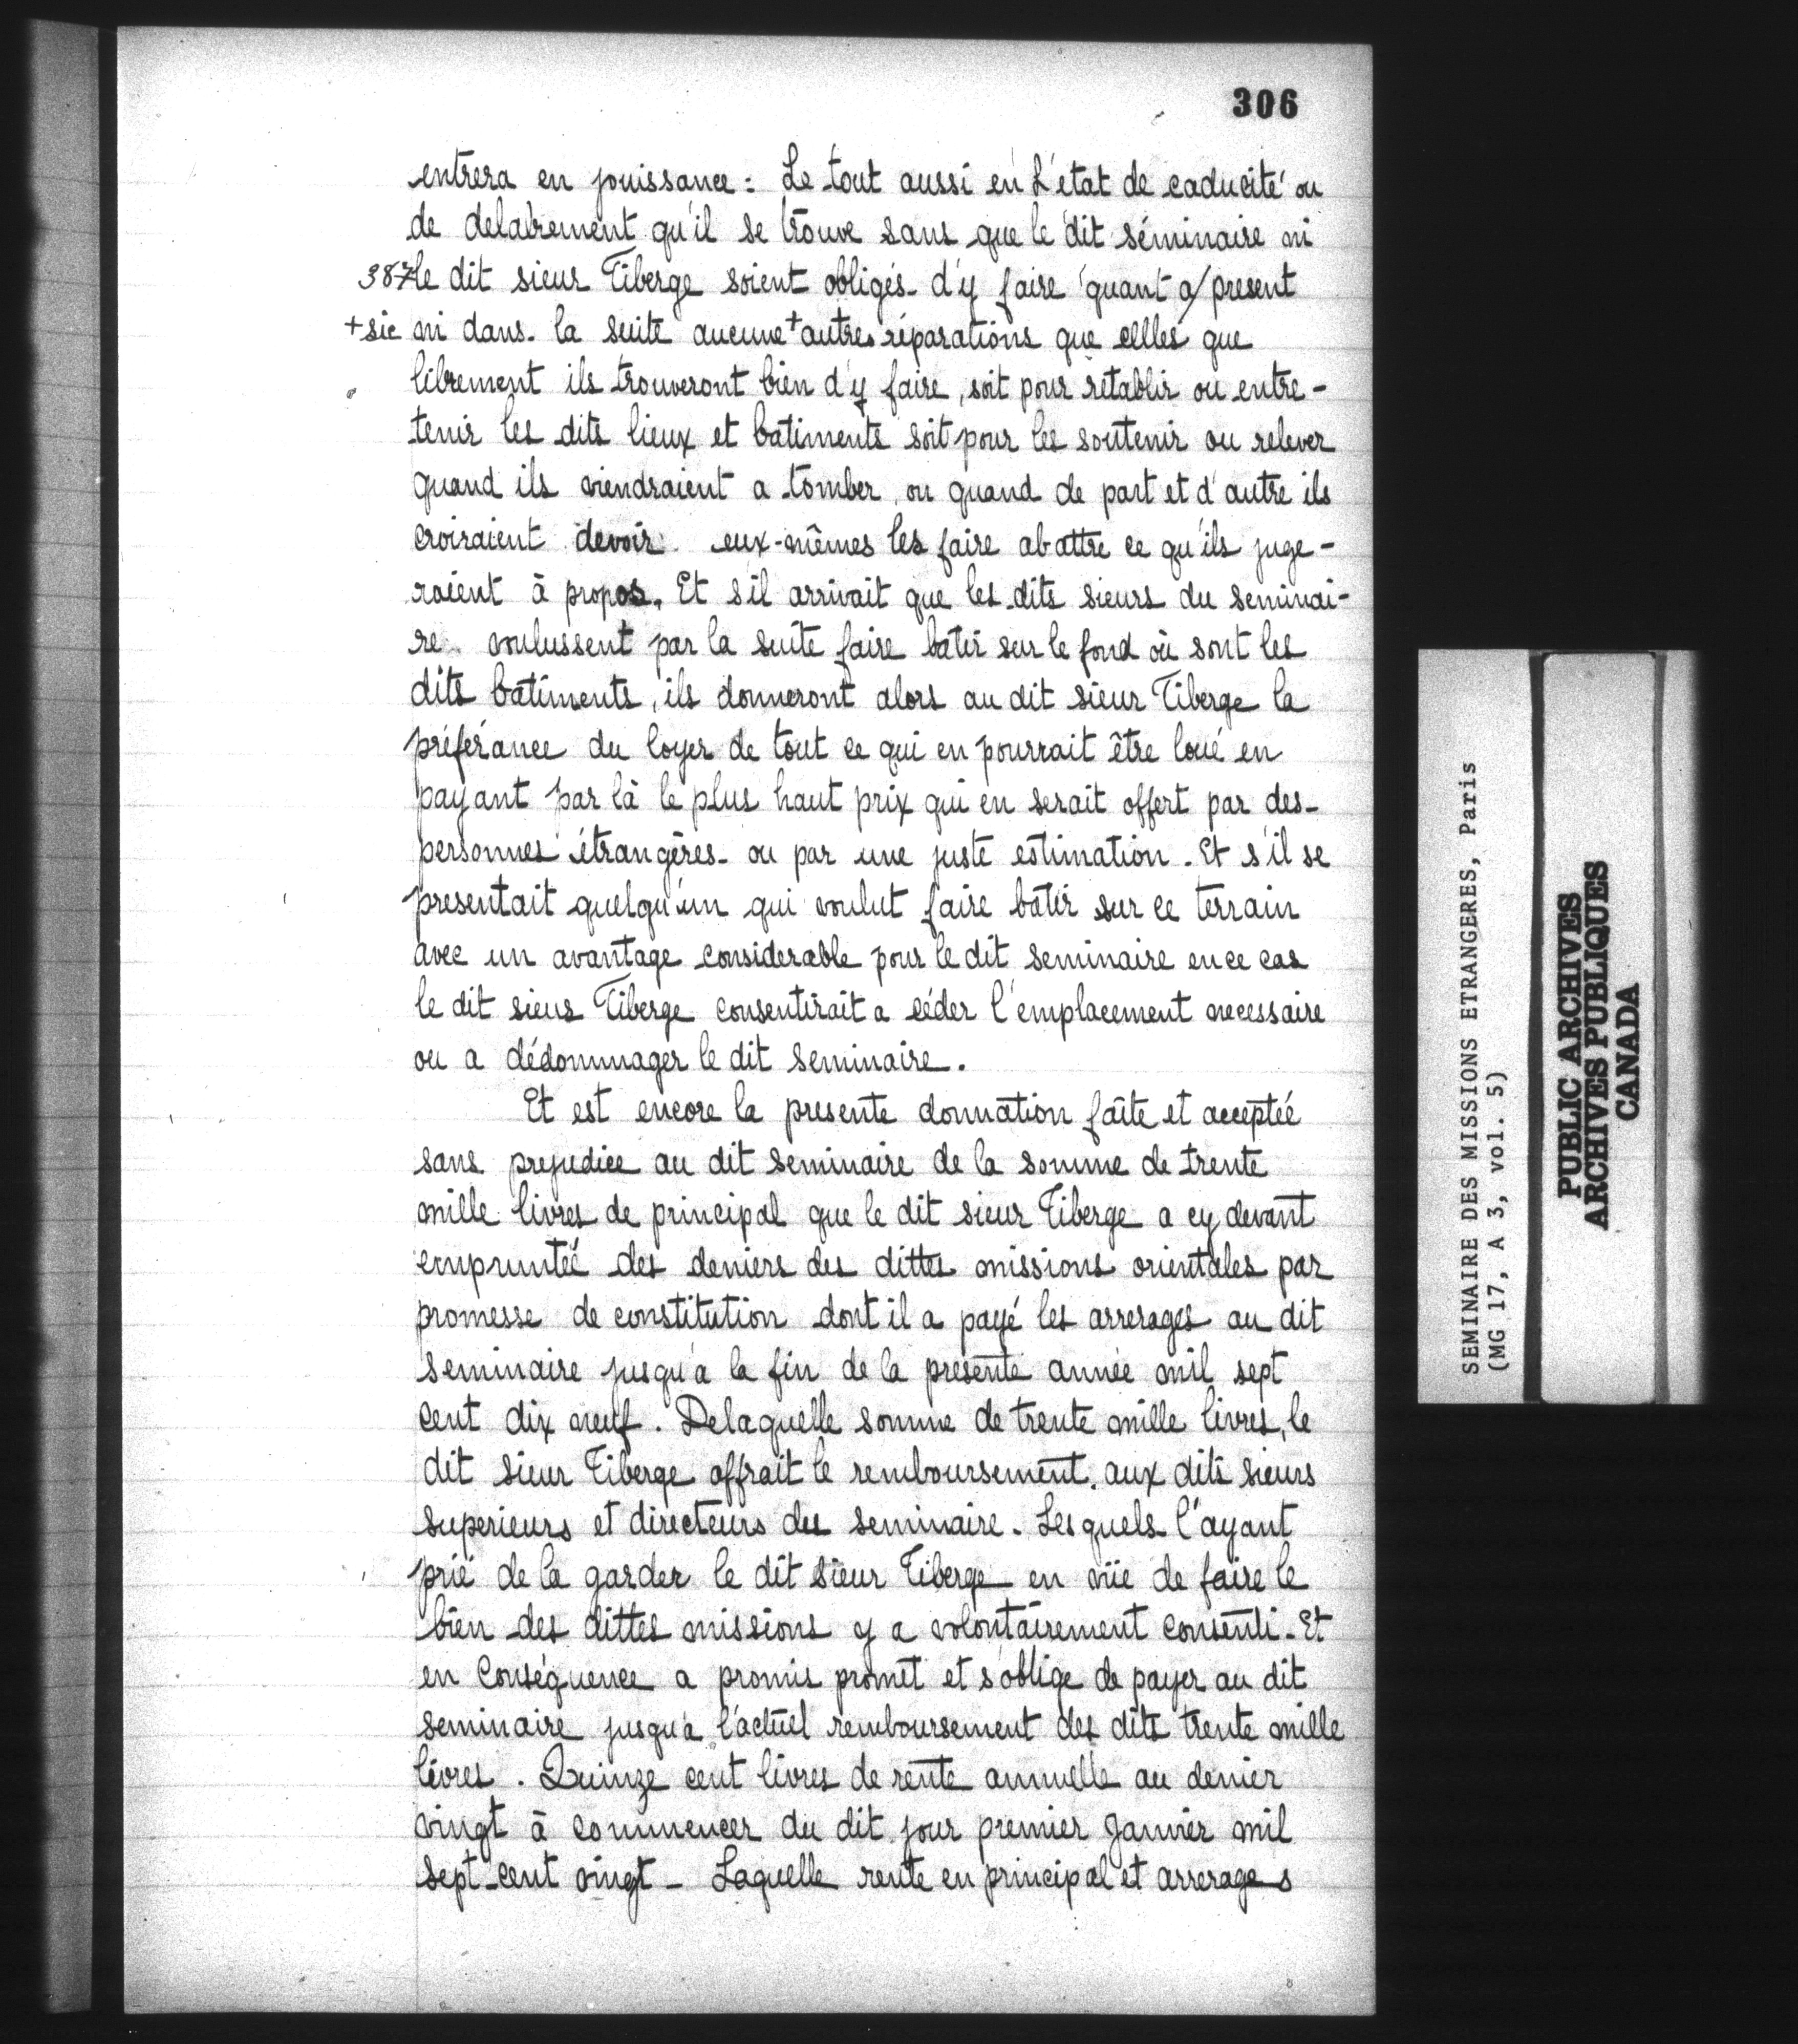 306
entrera en jouissance : Le tout aussi en L'état de caducité ou
de delabrement qu'il se trouve sans que le dit séminaire ni
387 le dit sieur Tiberge soient obligés d'y faire quant a/present
+sic ni dans la suite aucune + autres réparations que cellles que
librement ils trouveront bien d'y faire, soit pour retablir ou entre-
tenir les dits lieux et batiments soit pour les soutenir ou relever
quand ils viendraient a tomber, ou quand de part et d'autre ils
croiraient devoir eux-mêmes les faire abattre ce qu'ils juge-
raient à propos. Et s'il arrivait que les dits sieurs du seminai-
re voulussent par la suite faire batir sur le fond où sont les
dits batiments, ils donneront alors au dit sieur Tiberge la
préférance du loyer de tout ce qui en pourrait être loué en
payant par là le plus haut prix qui en serait offert par des-
personnes étrangères ou par une juste estimation. Et s'il se
presentait quelqu'un qui voulut faire batir sur ce terrain
avec un avantage considerable pour le dit seminaire en ce cas
le dit sieur Tiberge consentirait a céder l'emplacement necessaire
ou a dédommager le dit seminaire.
Et est encore la presente donnation faite et acceptée
sans prejudice au dit seminaire de la somme de trente
mille livres de principal que le dit sieur Tiberge a cy devant
empruntée des deniers des dittes missions orientales par
promesse de constitution dont il a payé les arrerages au dit
seminaire jusqu'a la fin de la presente année mil sept
cent dix neuf. Delaquelle somme de trente mille livres, le
dit sieur Tiberge offrait le remboursement aux dits sieurs
superieurs et directeurs du seminaire. Lesquels l'ayant
prié de la garder le dit sieur Tiberge en vüe de faire le
bien des dittes missions y a volontairement consenti. Et
en Conséquence a promis promet et s'oblige de payer au dit
seminaire jusqu'a l'actuel remboursement des dits trente mille
livres. Quinze cent livres de rente annuelle au denier
vingt à commencer du dit jour premier Janvier mil
sept-cent vingt - Laquelle rente en principal et arrerages
SEMINAIRE DES MISSIONS ETRANGERES, Paris
(MG 17, A 3, vol. 5)
PUBLIC ARCHIVES
ARCHIVES PUBLIQUES
CANADA